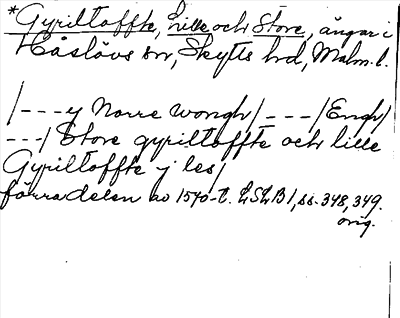 *Gyriltoffte, Lille och Store, ängar i
Håslövs sn, Skytts hd, Malm. l.
/---y Norre wongh/---/Engh/
---/Store gyriltoffte och lille
Gyriltoffte y les/
förra delen av 1540-t. LSLB1, ss. 348, 349.
orig.